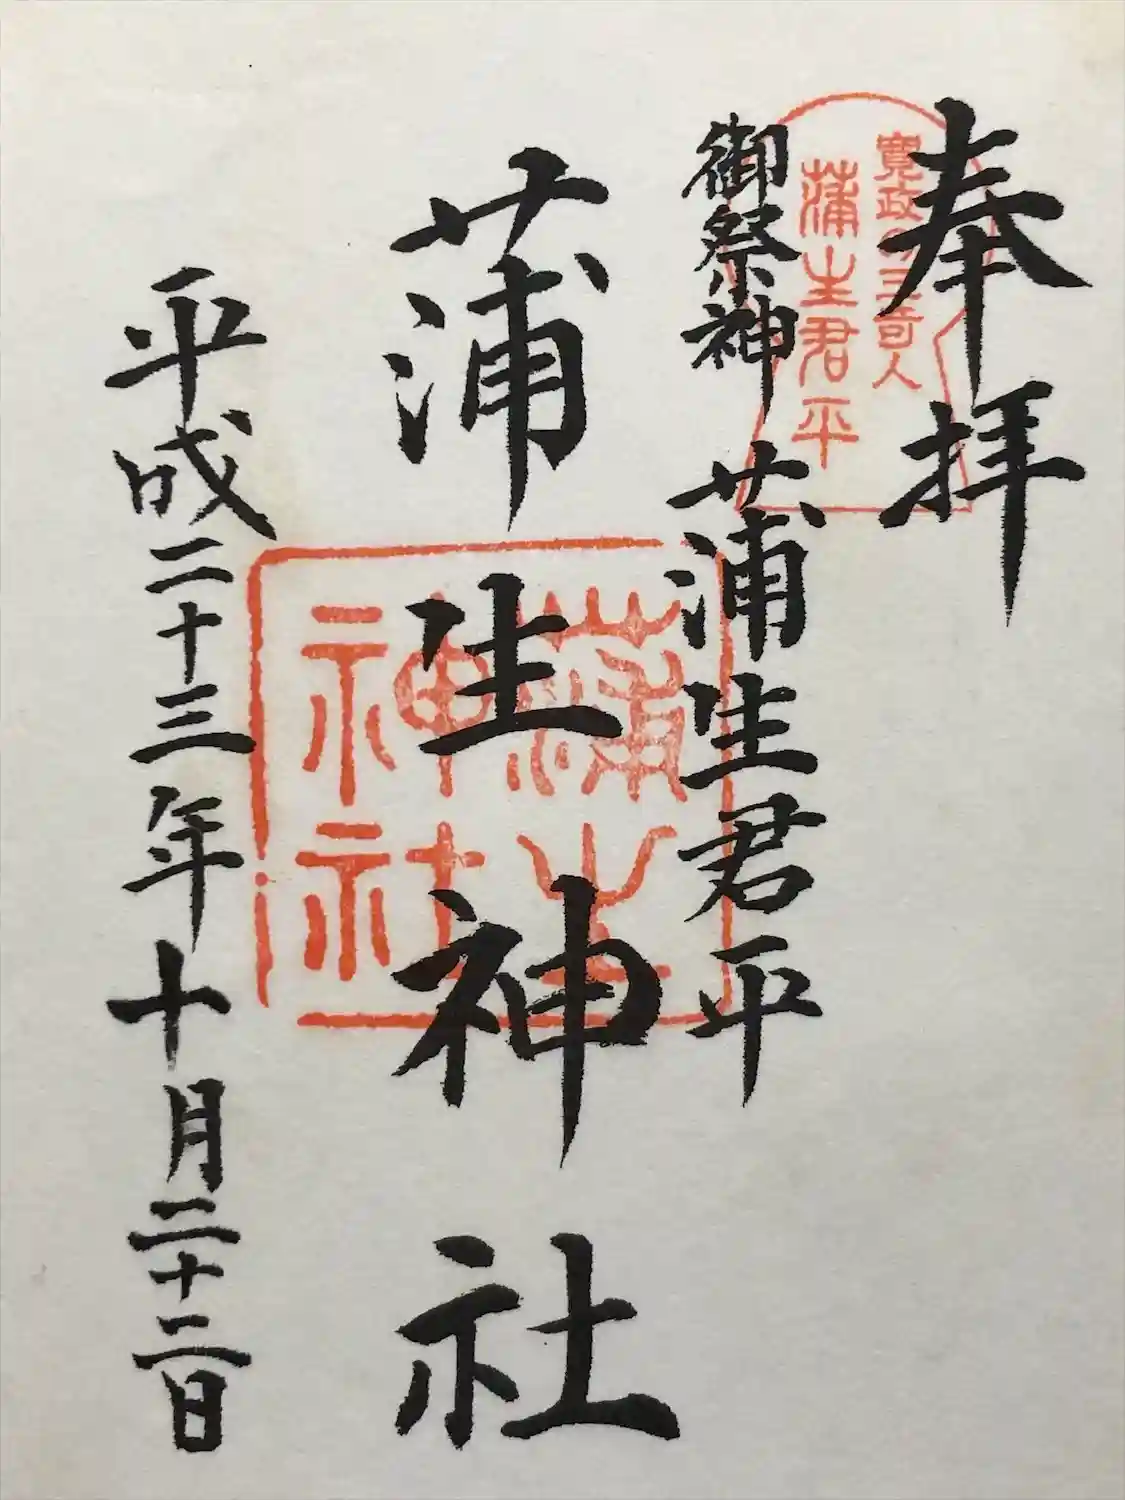 奉拝
寛政の三奇人
蒲生君平
御祭神 蒲生君平
蒲生神社
蒲生
神社
平成二十三年十月二十二日